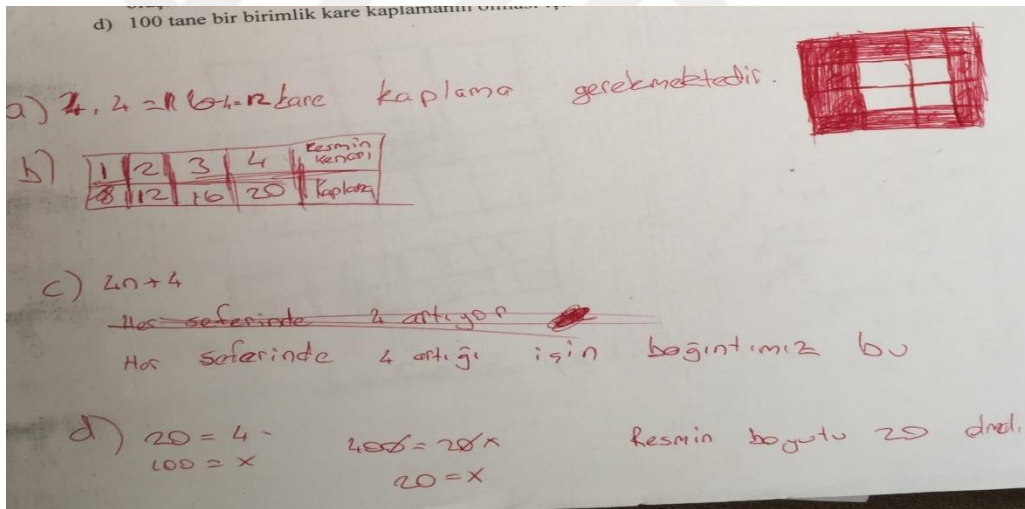 d) 100 tane bir birimlik kare kaplamanın olması
a) 4.4=16 16-4=12 kare kaplama gerekmektedir.
b) 1 2 3 4 Resmin kenarı
8 12 16 20 Kaplama
c) 4n+4
Her seferinde 4 artıyor
Her seferinde 4 artığı için bağıntımız bu
d) 20 = 4 400 = 20x Resmin boyutu 20
100 = x 20 = x